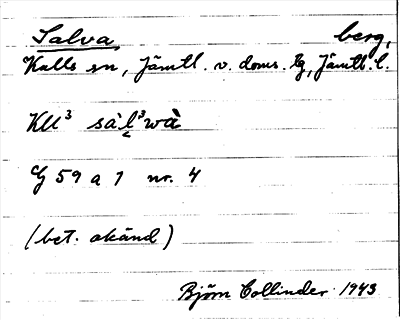 Salva, berg,
Kalls sn, Jämtl. v. doms. lg, Jämtl. l.
KU³ sàl̬³wà
G 59 a 1 nr. 4
(bet. okänd)
Björn Collinder 1943